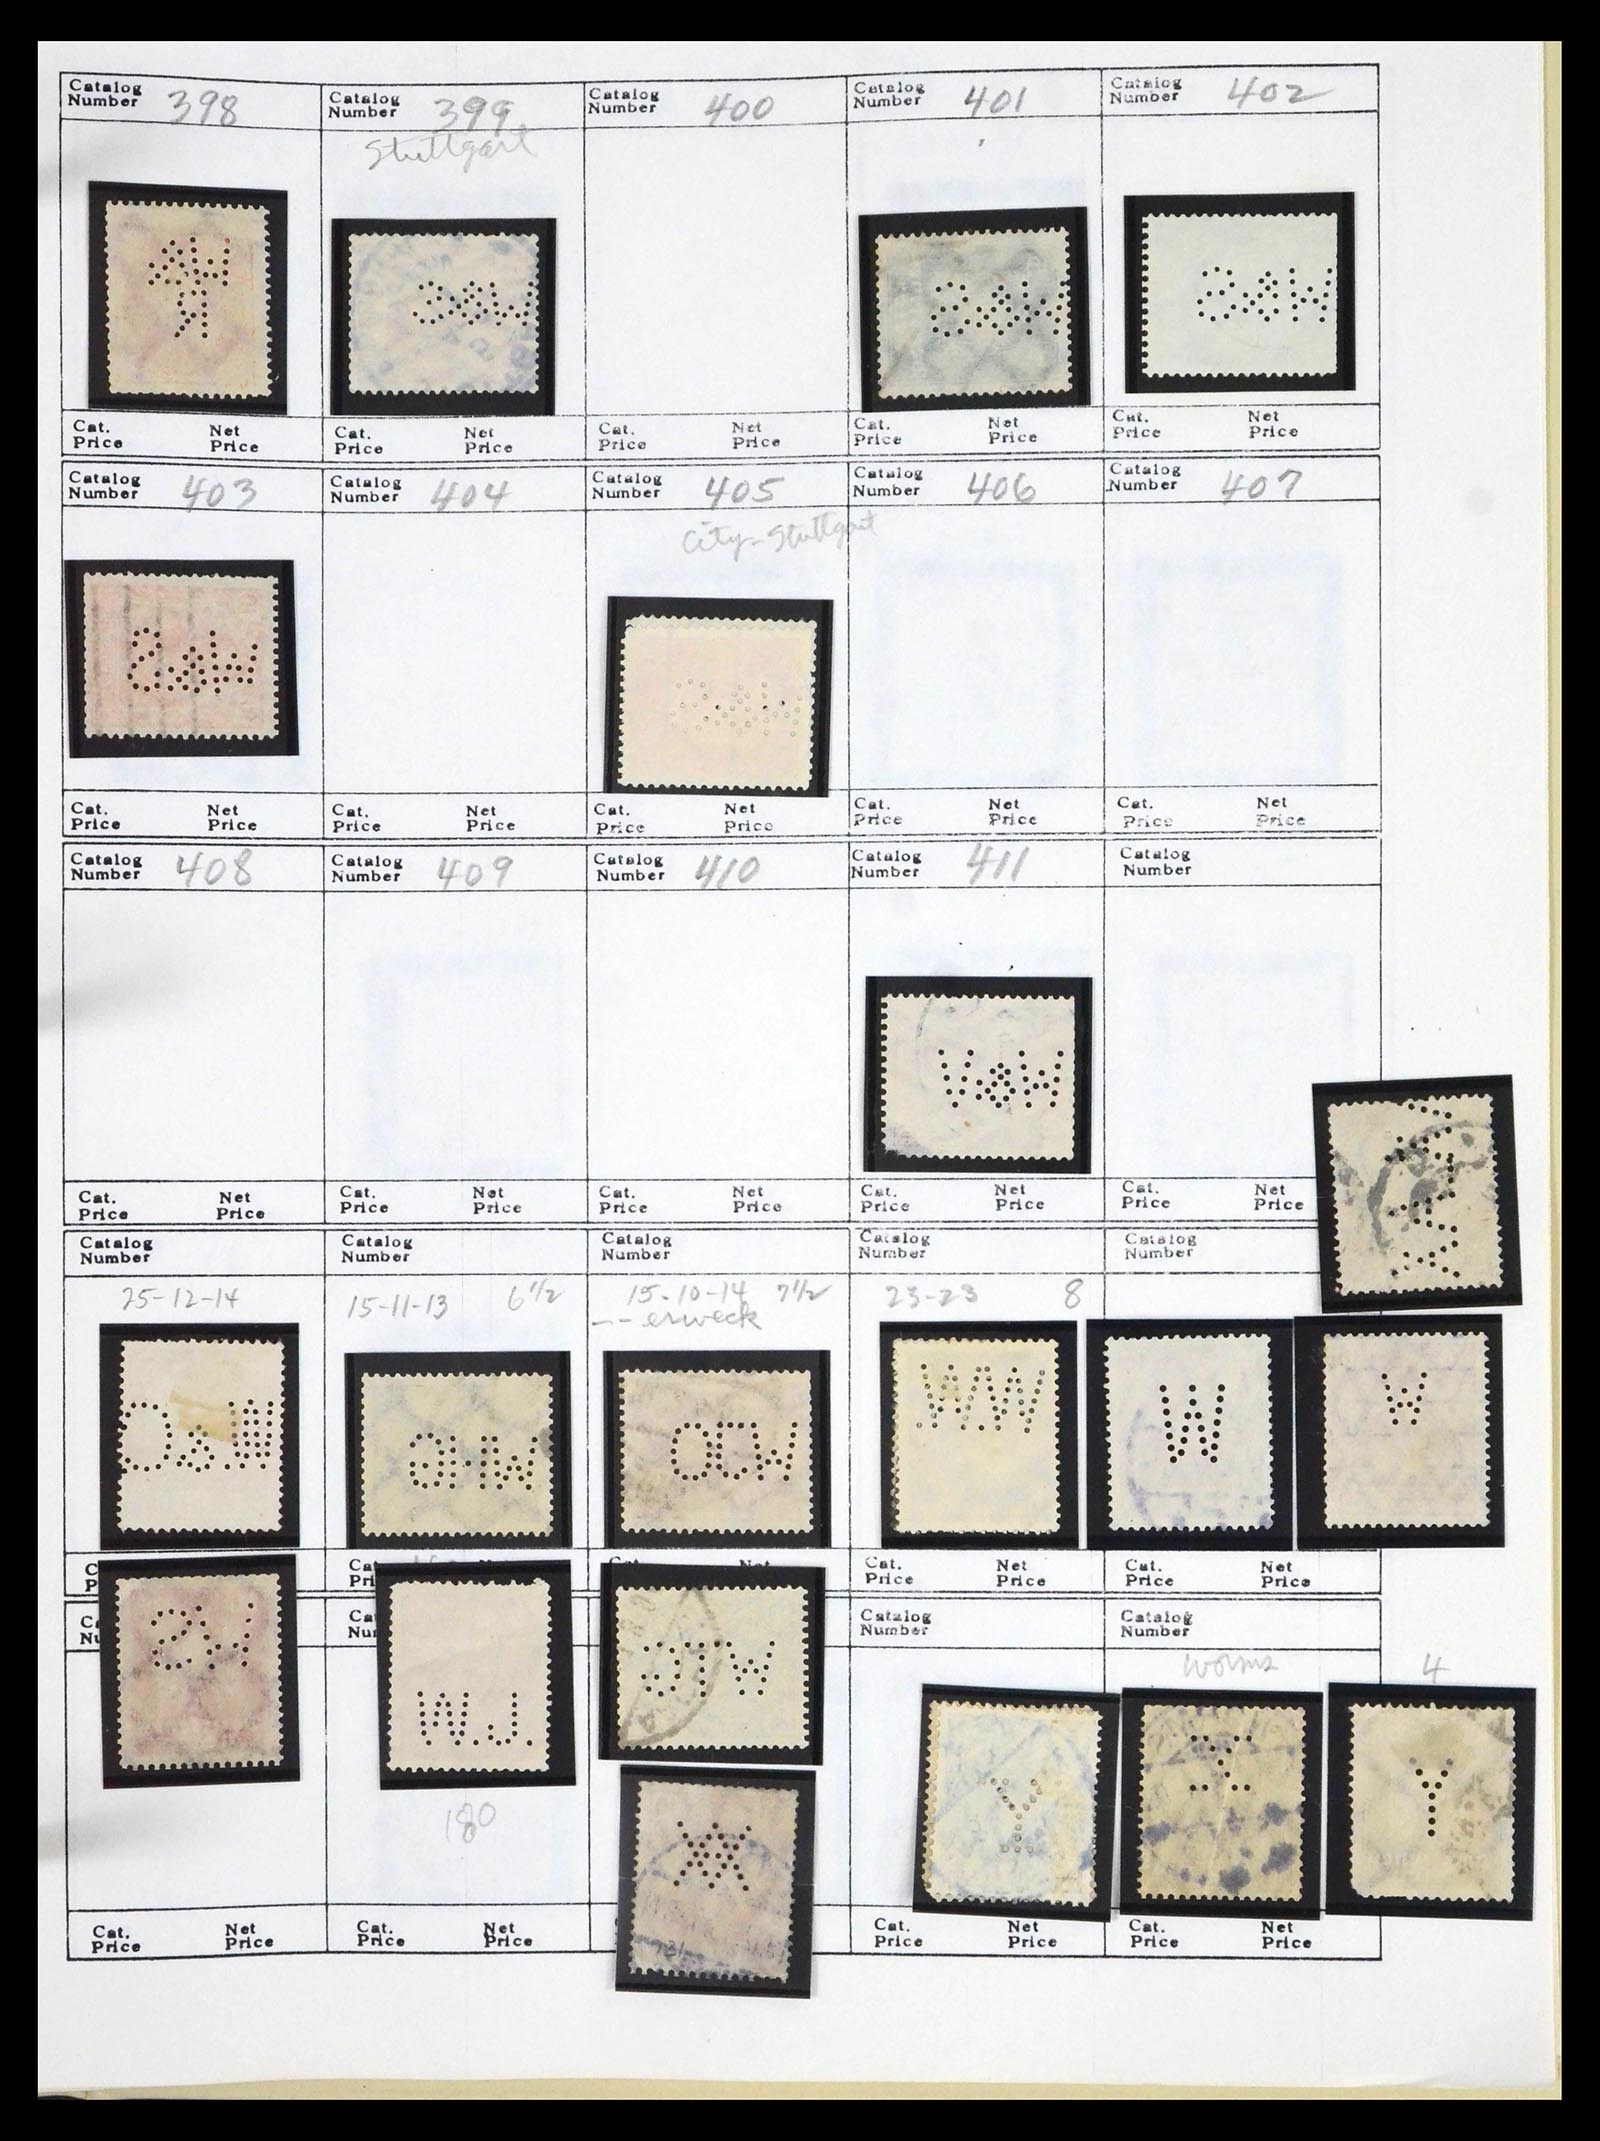 Catalog Number 398
Catalog Number 399
Catalog Number 400
Catalog Number 401
Catalog Number 402
Stuttgart
Cat. Price Net Price
Cat. Price Net Price
Cat. Price Net Price
Cat. Price Net Price
Cat. Price Net Price
Catalog Number 403
Catalog Number 404
Catalog Number 405
Catalog Number 406
Catalog Number 407
City-Stuttgart
Cat. Price Net Price
Cat. Price Net Price
Cat. Price Net Price
Cat. Price Net Price
Cat. Price Net Price
Catalog Number 408
Catalog Number 409
Catalog Number 410
Catalog Number 411
Catalog Number
V&H
Cat. Price Net Price
Cat. Price Net Price
Cat. Price Net Price
Cat. Price Net Price
Cat. Price Net Price
Catalog Number
Catalog Number
Catalog Number
Catalog Number
Catalog Number
25-12-14
15-11-13 6 1/2
15-10-14 7 1/2
--erweck
23-23 8
WW
W
W
Cat. Price Net Price
Cat. Price Net Price
Catalog Number
Catalog Number
worms
4
W.J.
Y
Y
180
Cat. Price Net Price
Cat. Price Net Price
Cat. Price Net Price
Cat. Price Net Price